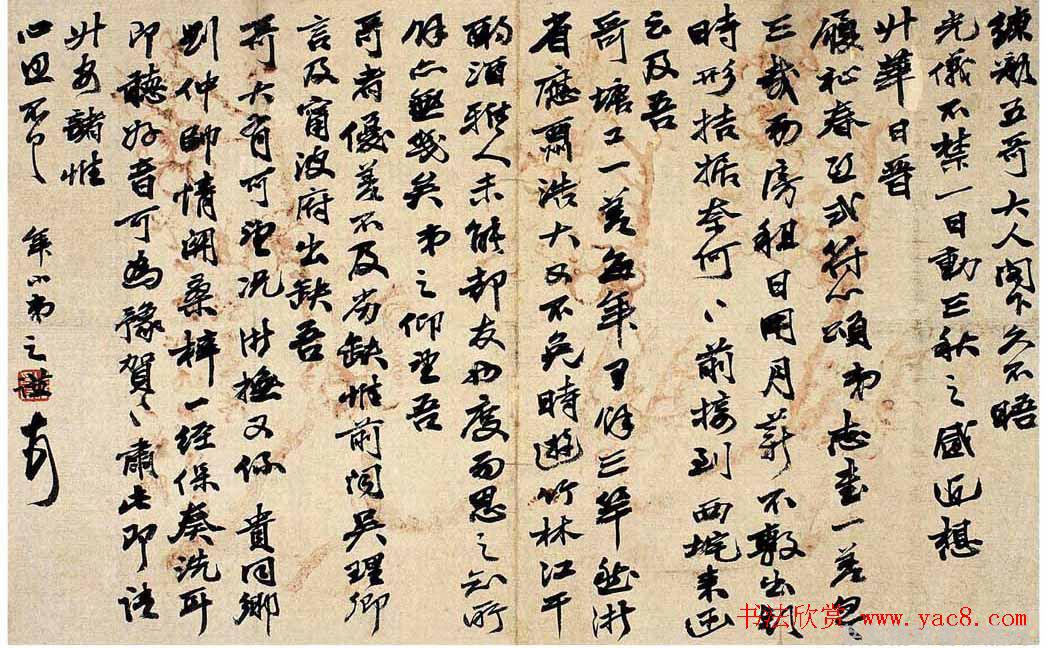 五哥大人閣下久不晤
光儀不禁一日動三秋之感近想
升華日晉
履祉春式符心頌弟志書一差忽
三載而房租日用月薪不敷出
時形拮据奈何、前接到西垞來函
云及吾
哥塘工一差每年可餘三竿然浙
省應酬浩大又不免時遊竹林江干
酌酒雅人未能却友而思之知所
餘亦無幾矣弟之仰望吾
哥者優差不及劣缺惟前閱吳理卿
言及甯波府出缺吾
哥大有可望況浙撫又係 貴同鄉
則仲帥情關桑梓一經保奏洗耳
即聽好音可為豫賀、肅此即請
升安諸惟
心照不 年小弟之謙
书法欣赏 www.yac8.com